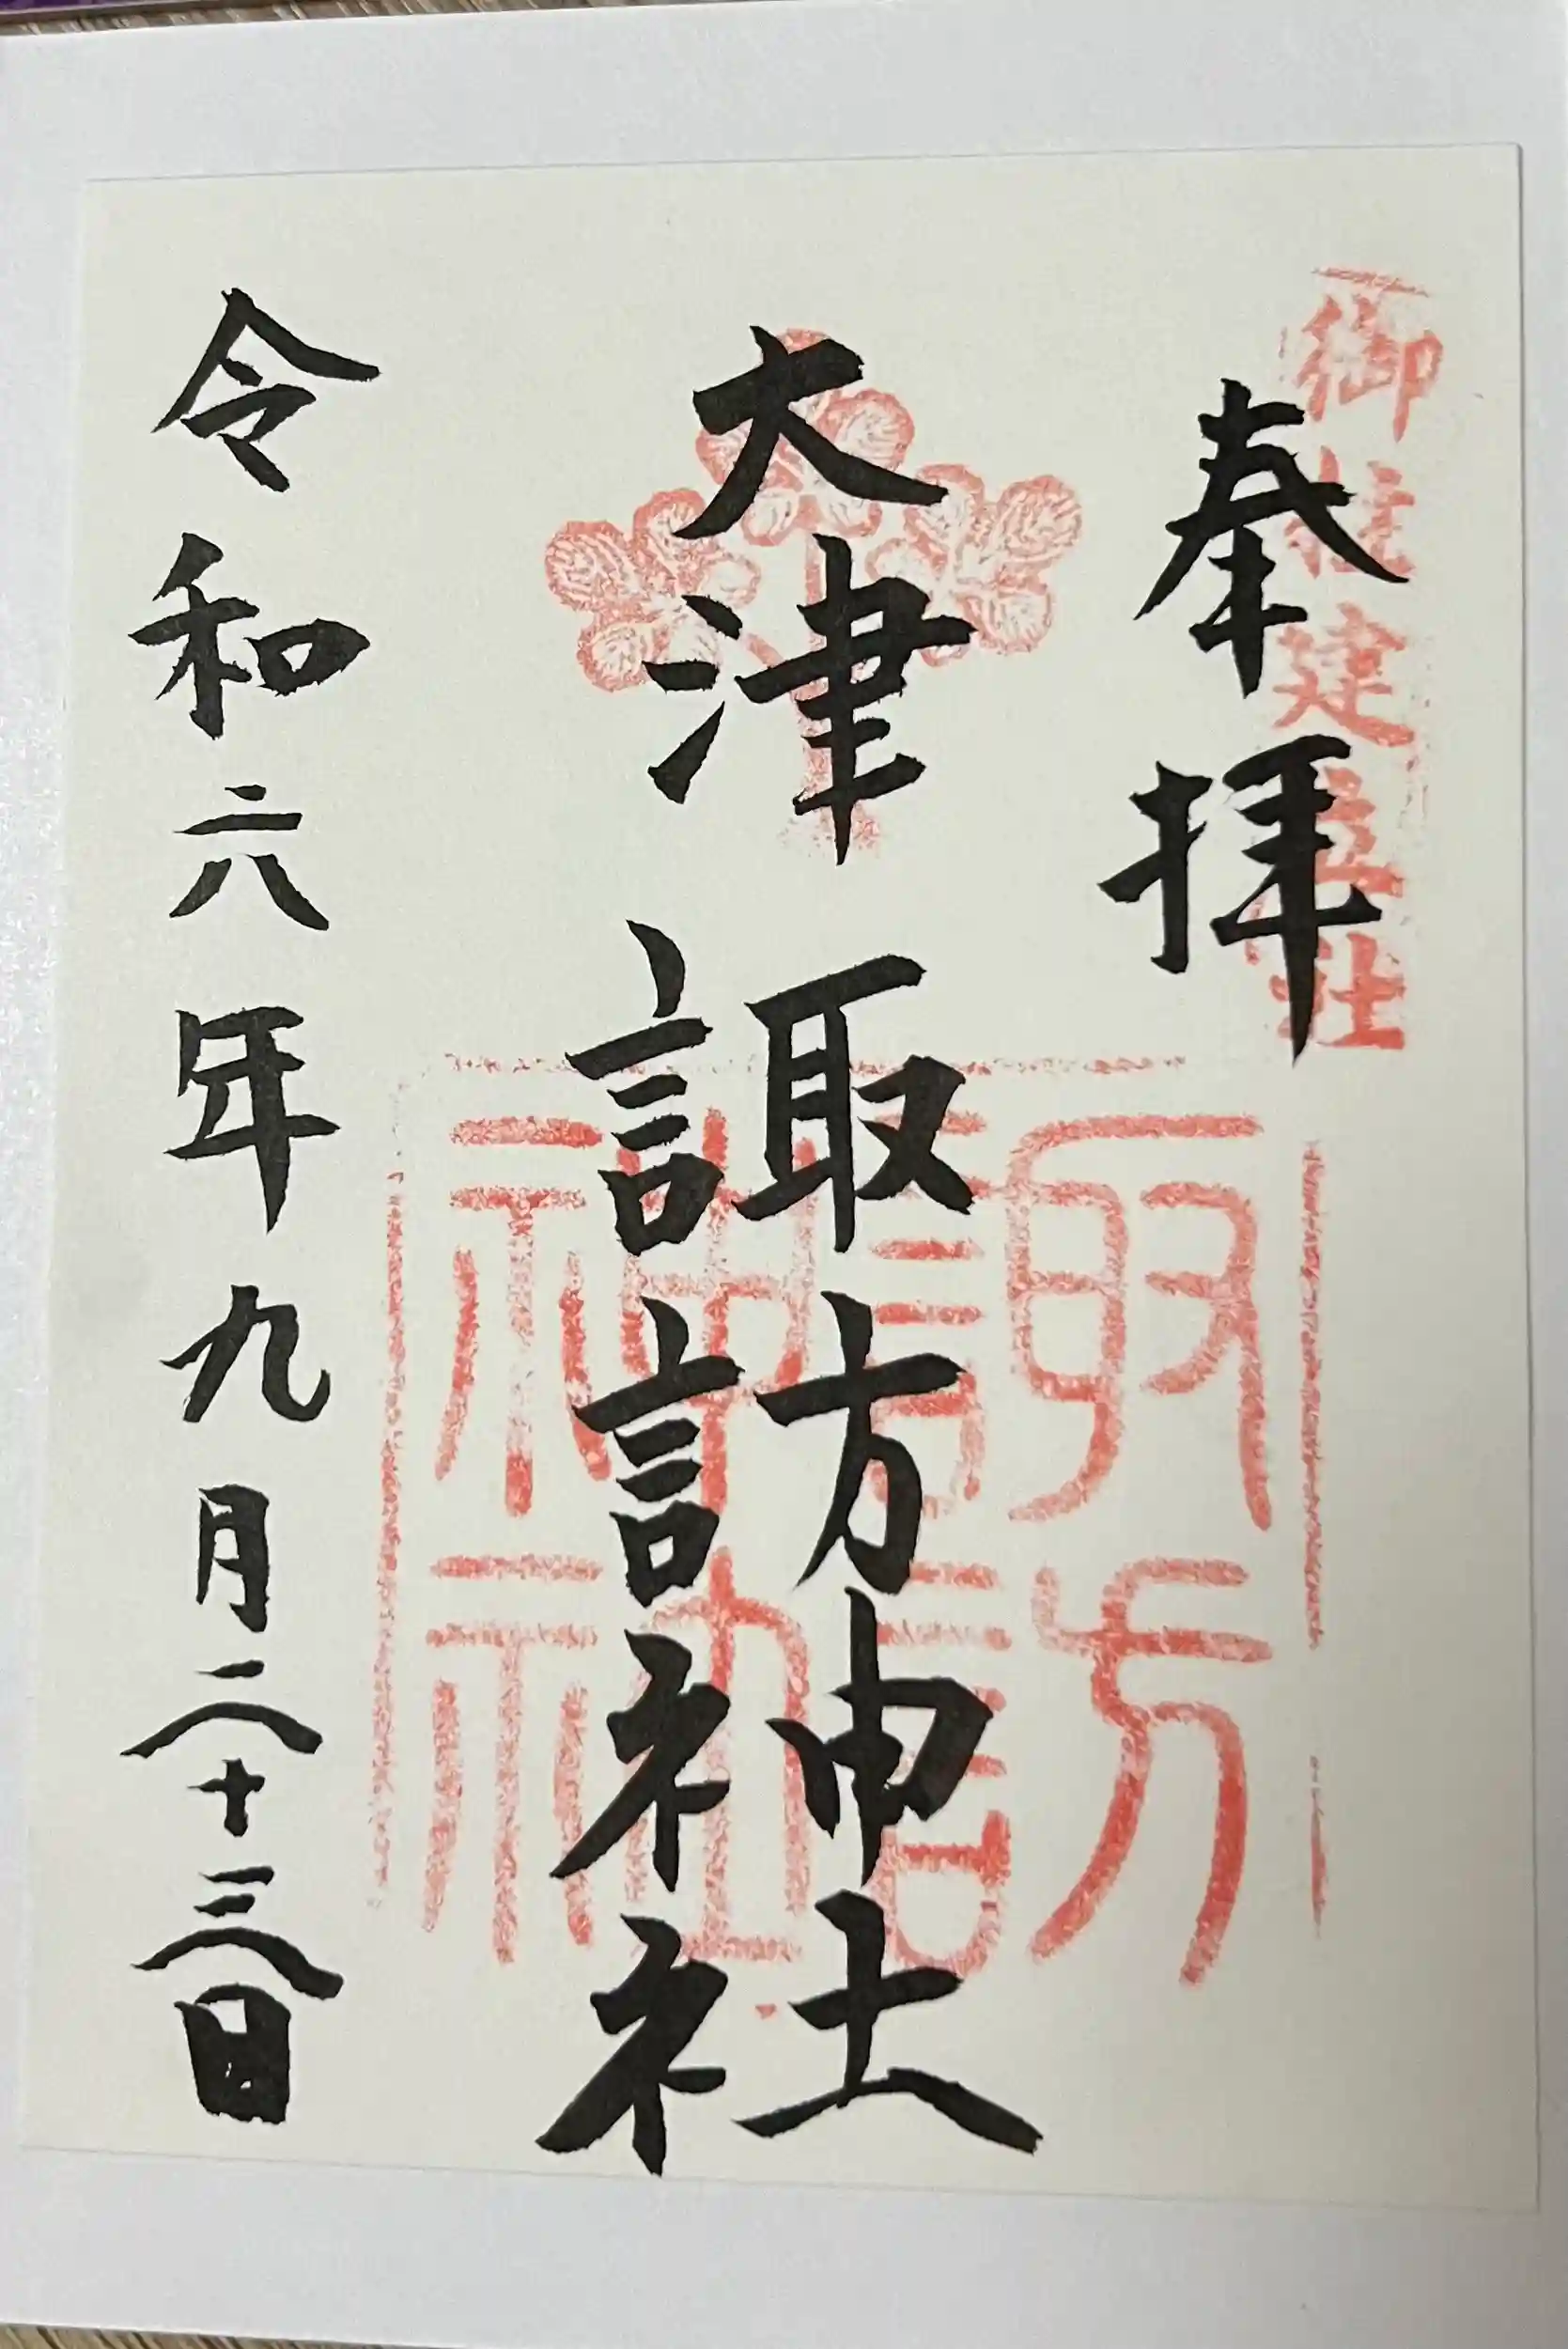 御柱建立社
奉拝
大津諏訪神社
諏訪神社
令和六年九月二十三日